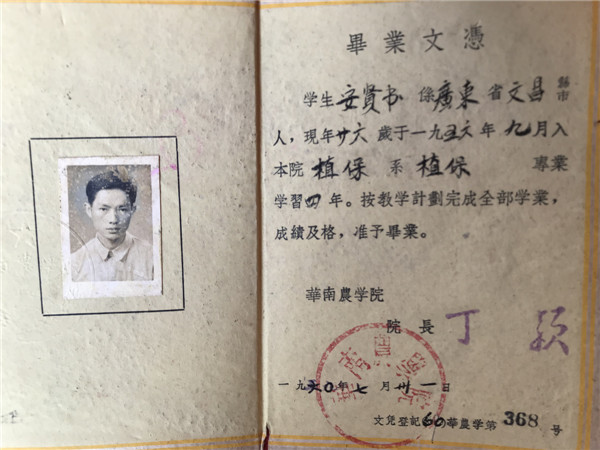 畢業文憑
学生安賢书係廣東省文昌縣市
人，現年廿六歲于一九五六年九月入
本院植保系植保專業
学習四年。按教学計劃完成全部学業，
成績及格，准予畢業。
華南農学院
院長丁穎
一九六〇年七月卅一日
文凭登記60華農学第368号